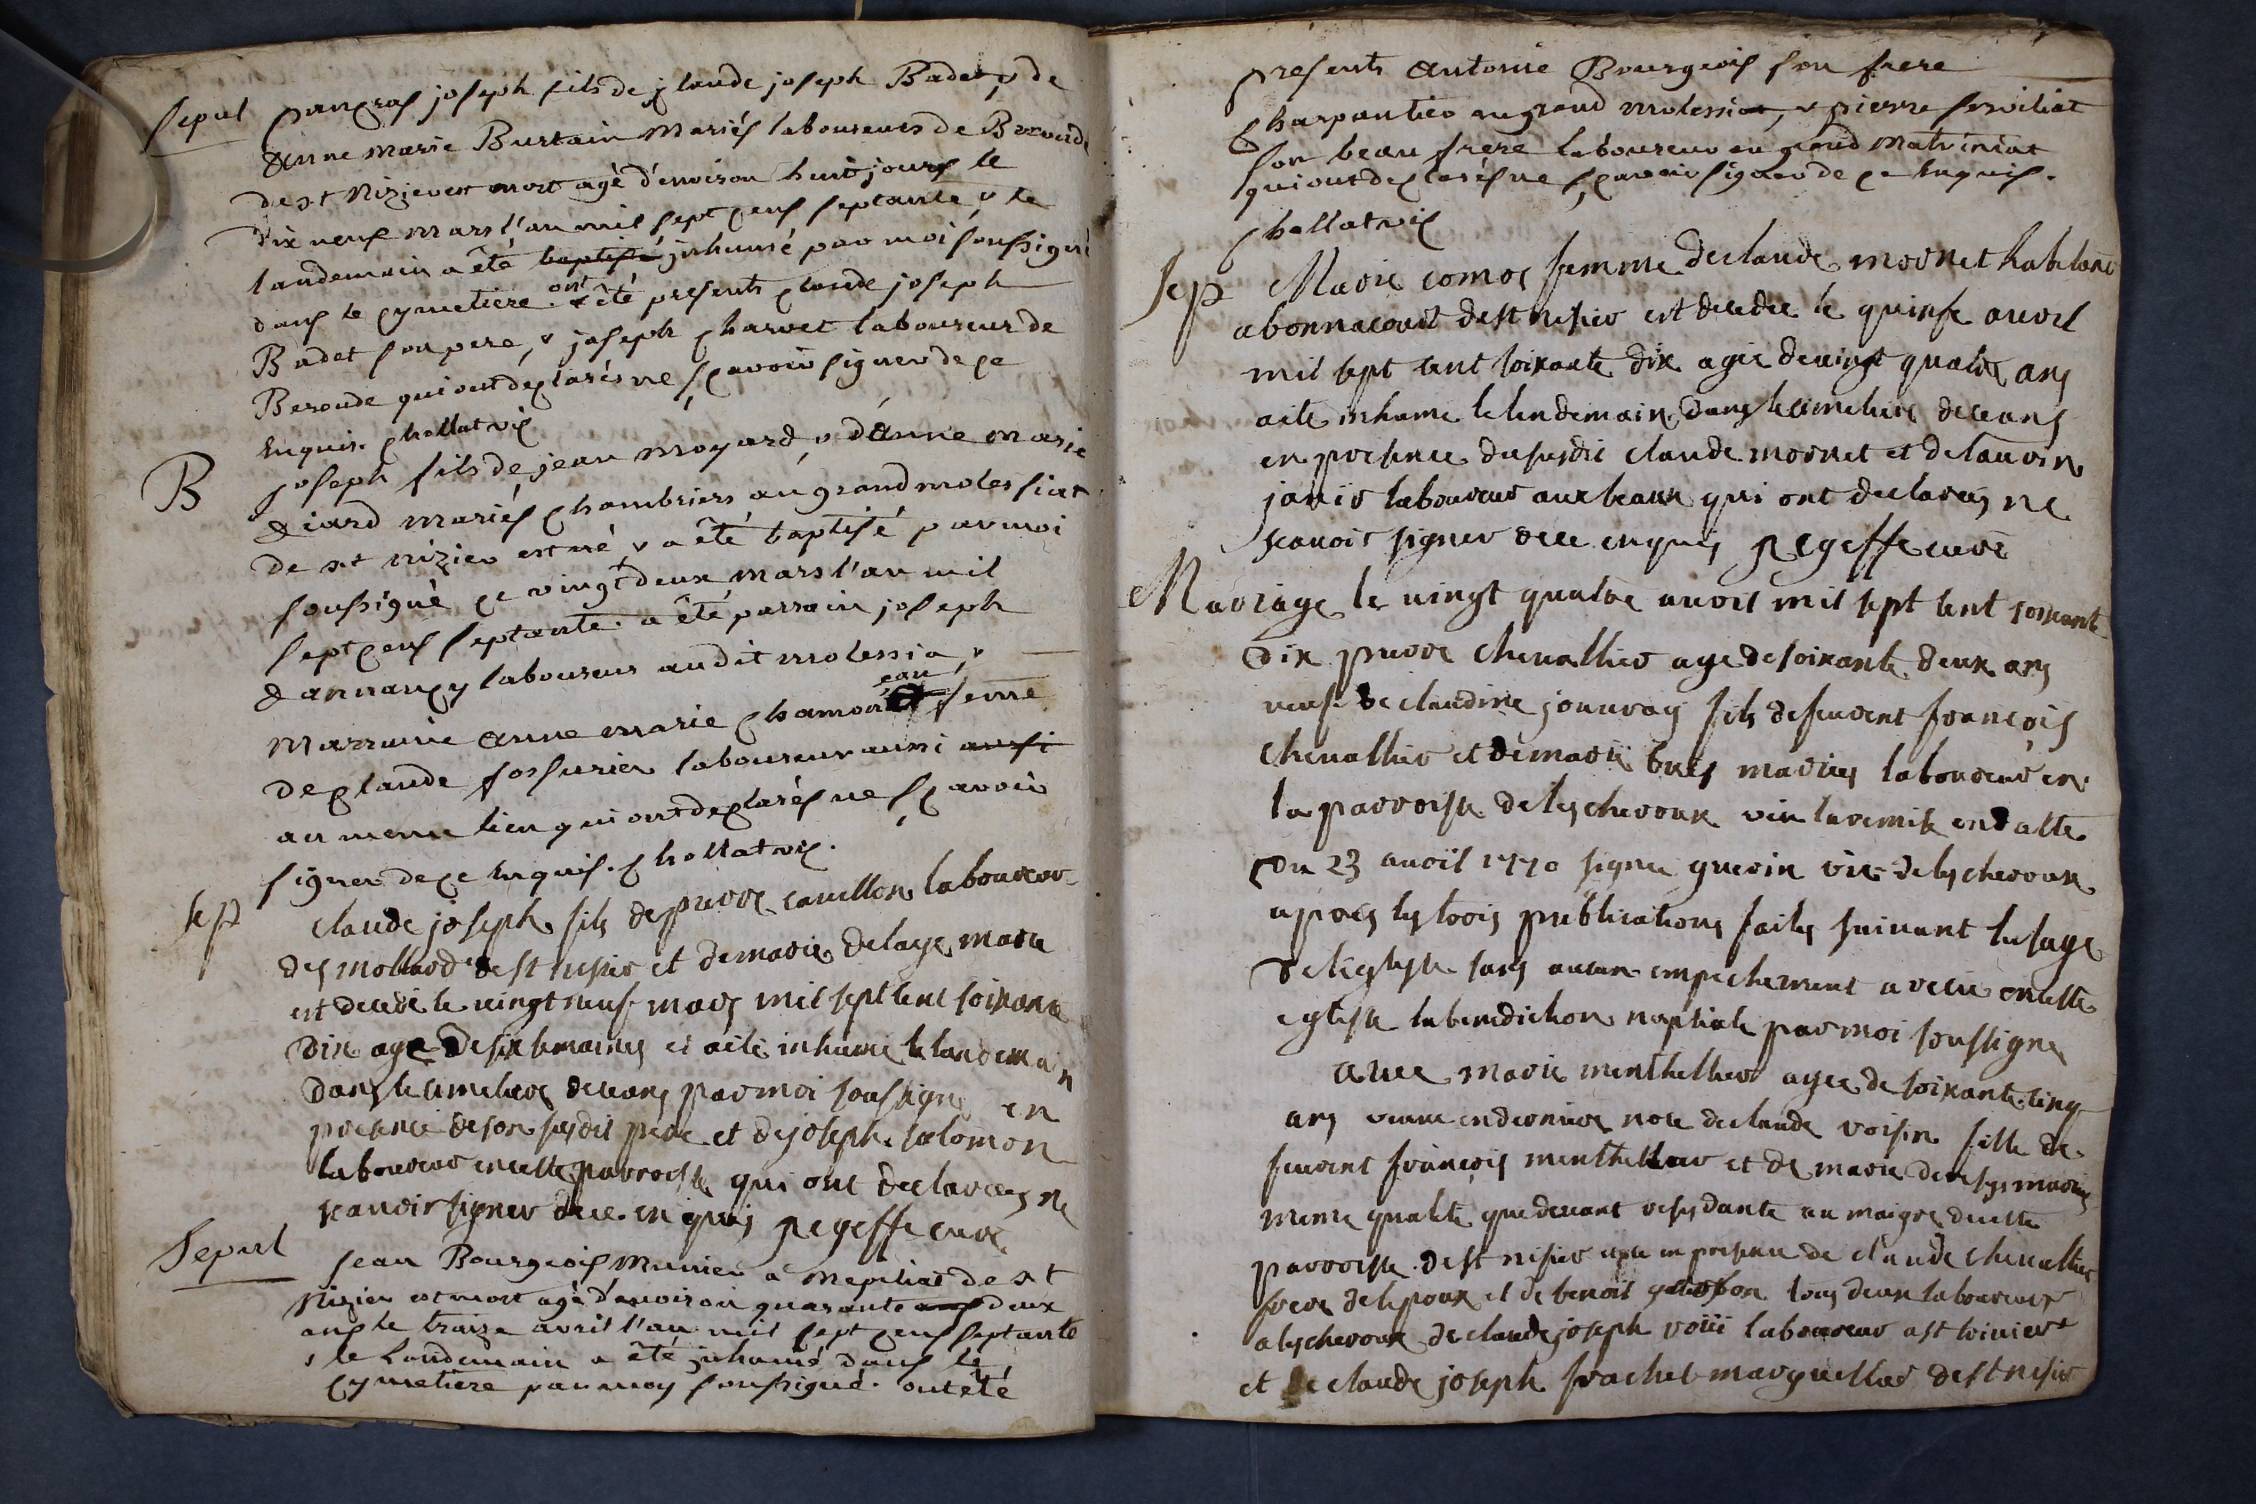 sepul pangras joseph fils de claude joseph Badet, & de
anne marie Burtain mariés laboureurs de
de st Nizier est mort agé d'environ huit jours le
dix neuf mars l'an mil sept cens septante & le
landemain a été baptisé inhumé par moi soussigné
dans le cymetiere. ont été presents claude joseph
Badet son pere, & joseph charvet laboureur de
Beroude qui ont declarés ne sçavoir signer de ce
enquis. chollat vic
B joseph fils de jean moyard, & d'anne marie
mariés chambriers au grand molessiat
de st nizier est né, & a été baptisé par moi
soussigné ce vingt deux mars l'an mil
sept cens septante. a été parrain joseph
dannancy laboureur audit molessia, &
marraine anne marie chamon eau feme
de claude fossurier laboureur aussi aussi
au meme lieu qui ont declarés ne sçavoir
signer de ce enquis. chollat vic.
sep claude joseph fils de pierre cavillon laboureur
des mollard de st nisier et de marie delaye marie
est decedé le vingt neuf mars mil sept cent soixante
dix age de six semaines et a eté inhume le landemain
dans le cimetiere de ceans par moi soussigne en
presence de son susdit pere et de joseph salomon
laboureur en cette parroisse qui ont declarees ne
scavoir signer de ce enquis geffe curé
sepul jean Bourgeois munier a mepiliat de st
Nizier est mort agé d'environ quarante ans deux
ans le traize avril l'an mil sept cens septante
& le landemain a été inhumé dans le
cymetiere par moy soussigné. ont été
presents antoine Bourgeois son frere
charpantier au grand molessiat, & pierre serviliat
son beau frere laboureur au grand matriniat
qui ont declarés ne sçavoir signer de ce enquis.
chollat vic
sep Marie comoz femme de claude mornet habitant
a bonnacourt de st nisier est decedee le quinse avril
mil sept cent soixante dix agée de vingt quatre ans
a eté inhume le lendemain dans le cimetiere de ceans
en presence du susdit claude mornet et de lauren
janis laboureur aux beaux qui ont declarees ne
scavoir signer de ce enquis geffe curé
Mariage le vingt quatre avril mil sept cent soixante
dix pierre chevallier age de soixante deux ans
veuf de claudine jouvray fils de feurent françois
chevallier et de marie brés mariés laboureur en
la parroisse de lescheroux vu la remise en datte
du 23 avoil 1770 signee guerin vic de lescheroux
apres les trois publications faites suivant lusage
de leglise sans aucun empechement a recu en cette
eglise la benediction nuptiale par moi soussigne
avec marie menthellier agee de soixante cinq
ans veuve en derniere noce de claude voisin fille de
feurent françois menthellier et de marie mariés
meme qualité que devant residante au maigre de cette
parroisse de st nisier en presence de claude chevallier
frere de lepoux et de benoit tous deux laboureurs
a lescheroux de claude joseph laboureur a st
et de claude joseph frachet marguellier de st nisier